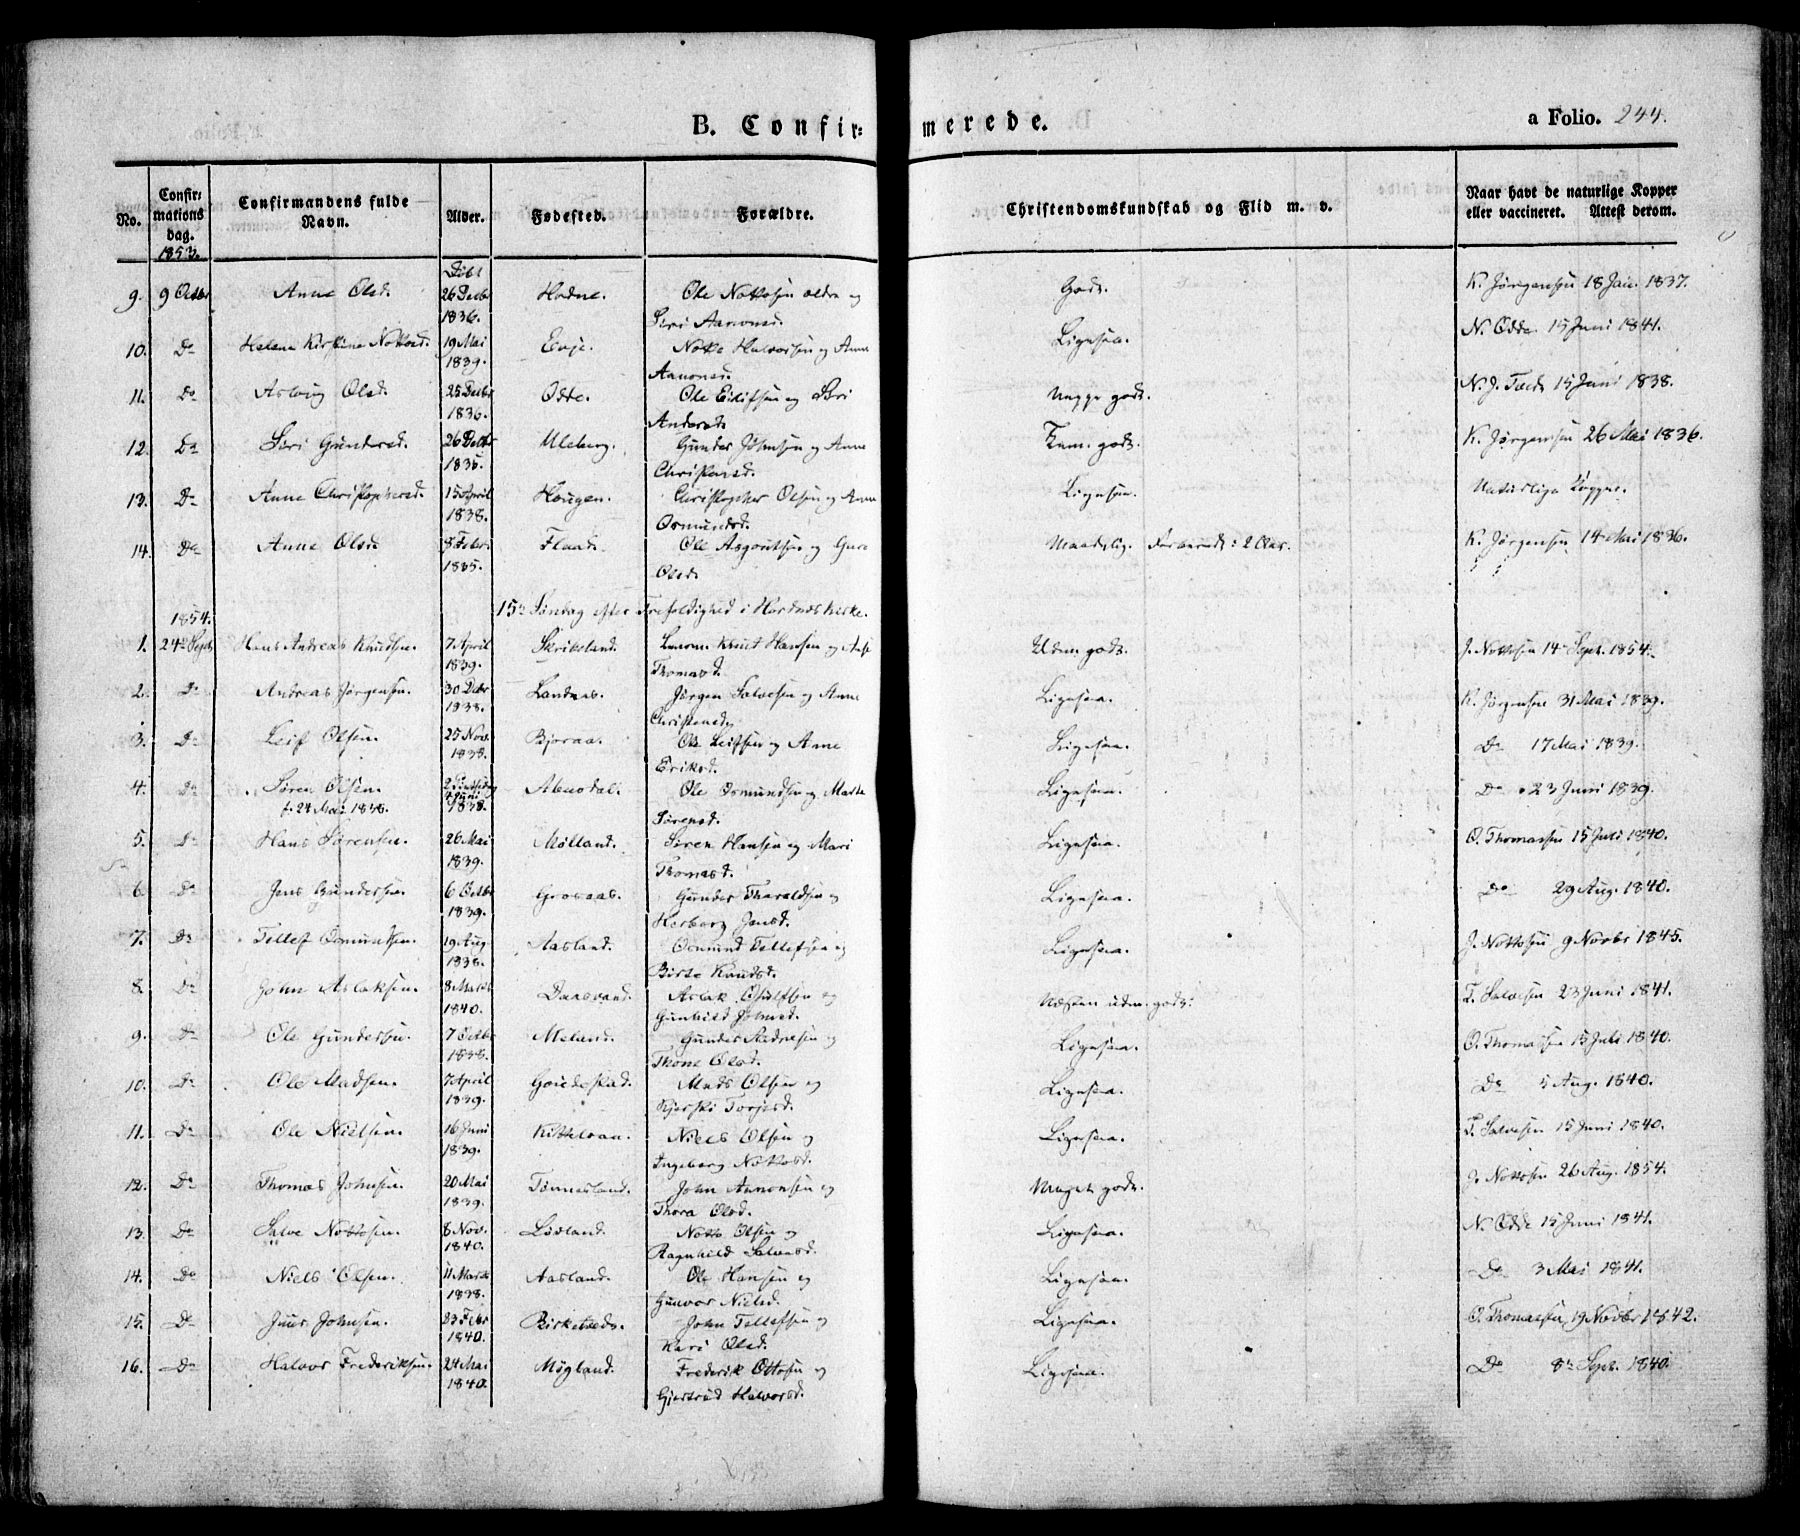 B. Confir: merede. a Folio. 244.
No. Confir: mations dag. Confirmandens fulde Navn. Alder. Fødested. Forældre. Christendomskundskab og Flid m. v. Naar havt de naturlige Kopper eller vaccineret. Attest derom.
1853.
9. 9 Octbr Anne Olsd. 26 Decbr 1836. Hodne. Ole Nottosen ældre og Siri Aanonsd. Godt. K. Jørgensen 18 Jan. 1837.
10. Do Helene Kirstine Nottosd. 19 Mai 1839. Evje. Notto Halvorsen og Anne Aanonsd. Ligesaa. N. Odde 15 Juni 1841.
11. Do Aslaug Olsd. 25 Decbr 1836. Odde. Ole Eilifsen og Siri Andersd. Meget godt. N. J. 15 Juni 1838.
12. Do Siri Gundersd. 26 Decbr 1835. Uleberg. Gunder Johnsen og Anne Christensd. Tem. godt. K. Jørgensen 26 Mai 1836.
13. Do Anne Christophersd. 15 April 1838. Hougen. Christopher Olsen og Anne Osmundsd. Ligesaa. Naturlige Kopper.
14. Do Anne Olsd. 8 Febr 1835. Flaad. Ole Asgoutsen og Guro Olsd. Maadelig. Forberedt i 2 Aar. K. Jørgensen 14 Mai 1836.
1854. 15de Søndag efter Trefoldighed i Hordnæs Kirke.
1. 24de Septbr Hans Andreas Knudsen. 7 April 1839. Skribeland. Knut Hansen og Thomasd. Udm. godt. J. Nottosen 14 Sept. 1854.
2. Do Andreas Jørgensen. 30 Decbr 1838. Landaas. Jørgen Salvesen og Anne Christensd. Ligesaa. K. Jørgensen 31 Mai 1839.
3. Do Leif Olsen. 25 Nov. 1838. Bjoraa. Ole Leifsen og Anne Eriksd. Ligesaa. Do 17 Mai 1839.
4. Do Søren Olsen. f. 24 Mai 1838. 1838. Abusdal. Ole Osmundsen og Marte Sørensd. Ligesaa. Do 23 Juni 1839.
5. Do Hans Sørensen. 26 Mai 1839. Mølland. Søren Hansen og Mari Thomasd. Ligesaa. O. Thomassen 15 Juli 1840.
6. Do Jens Gundersen. 6 Octbr 1839. Grosaas. Gunder Tharaldsen og Herborg Jensd. Ligesaa. Do 29 Aug. 1840.
7. Do Tellef Osmundsen. 19 Aug. 1838. Aasland. Osmund Tellefsen og Birte Knudsd. Ligesaa. J. Nottosen 9 Novbr 1845.
8. Do John Aslaksen. 8 Marts 1840. Daasvand. Aslak Osulfsen og Gunhild Johnsd. Næsten udm. godt. T. Salvesen 23 Juni 1841.
9. Do Ole Gundersen. 7 Octbr 1838. Meland. Gunder og Thone Olsd. Ligesaa. O. Thomassen 15 Juli 1840.
10. Do Ole Madsen. 7 April 1839. Mads Olsen og Kjersti Torjesd. Ligesaa. Do 5 Aug. 1840.
11. Do Ole Nielsen. 16 Juni 1839. Niels Olsen og Ingeborg Nottosd. Ligesaa. T. Salvesen 15 Juni 1840.
12. Do Thomas Johnsen. 20 Mai 1839. Tønnesland. John Aanonsen og Thora Olsd. Meget godt. J. Nottosen 26 Aug. 1854.
13. Do Salve Nottosen. 8 Nov. 1840. Lisland. Notto Olsen og Ragnhild Salvesd. Ligesaa. N. Odde 15 Juni 1841.
14. Do Niels Olsen. 11 Marts 1838. Aasland. Ole Hansen og Gunvor Nielsd. Ligesaa. Do 3 Mai 1841.
15. Do Johnsen. 23 Febr 1840. Birketveds. John Tellefsen og Kari Olsd. Ligesaa. O. Thomassen 19 Novbr 1842.
16. Do Halvor Frederiksen. 24 Mai 1840. Møgland. Frederik Ottosen og Gjertrud Halvorsd. Ligesaa. Do 8de Sept. 1840.